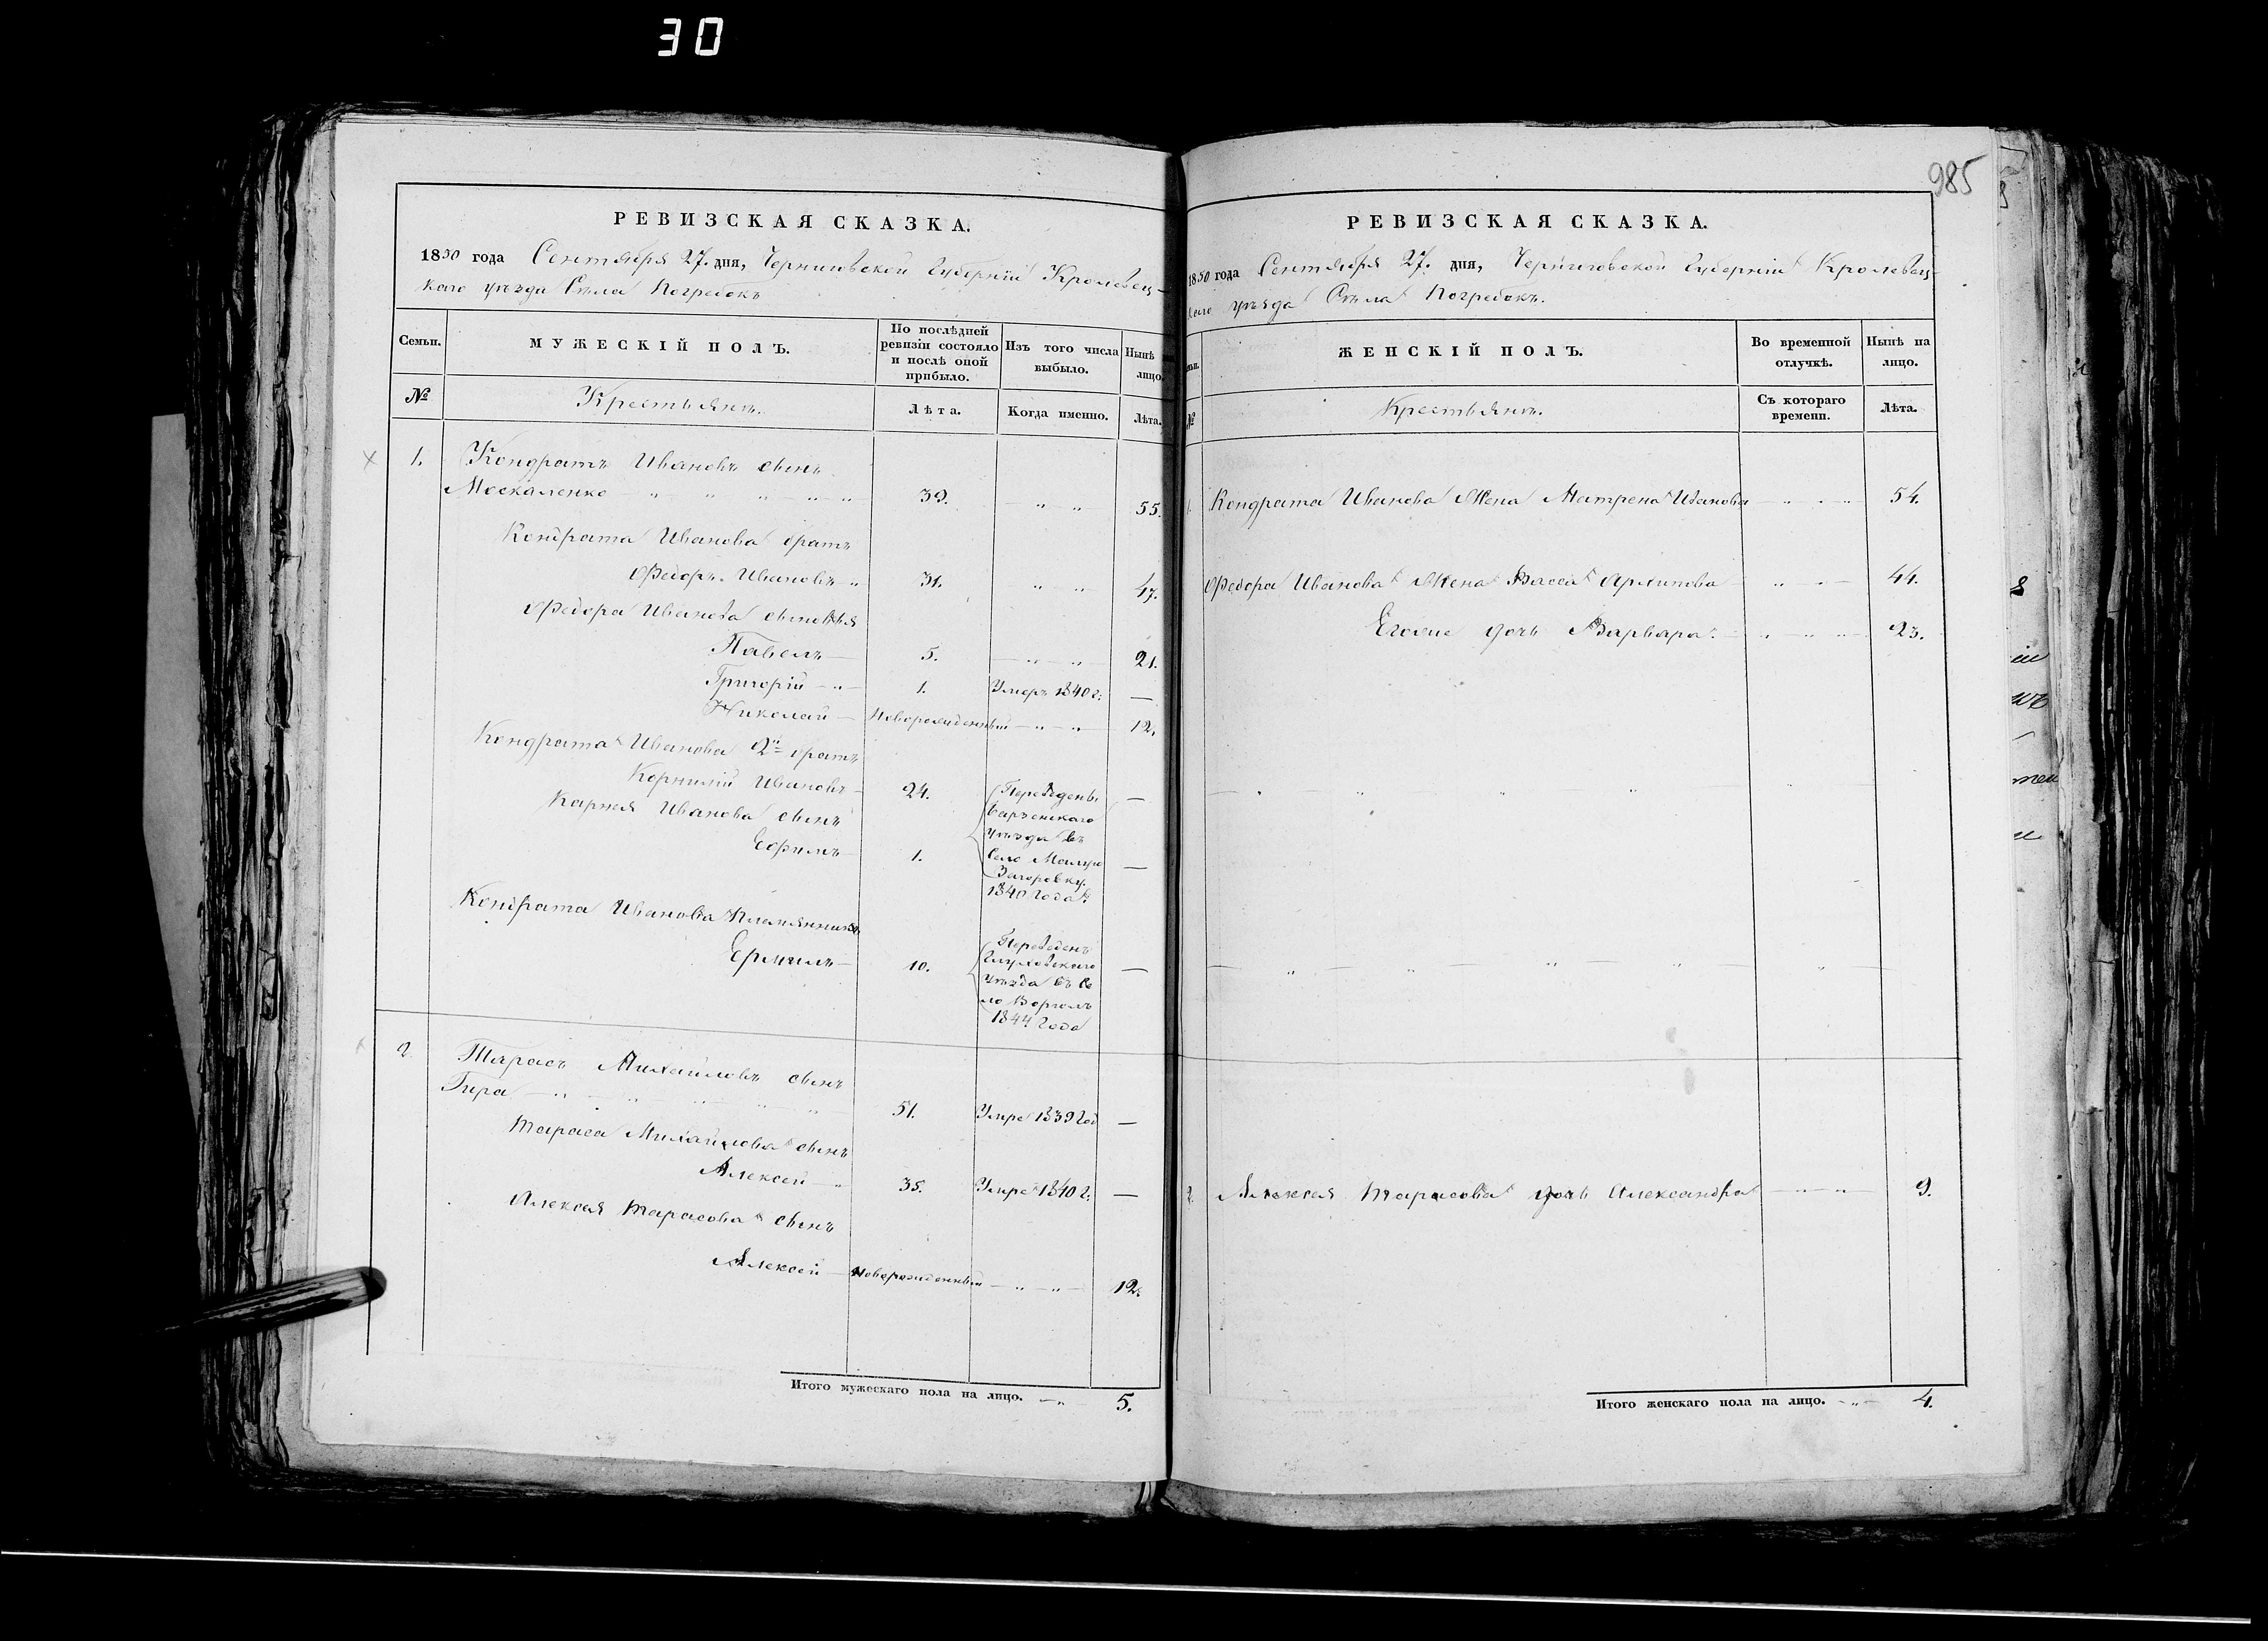 30
985
РЕВИЗСКАЯ СКАЗКА.
1850 года Сентября 27. дня, Черниговской Губерніи Кролевец-
каго уѣзда Сѣла Погребокъ
Семьи.
МУЖЕСКІЙ ПОЛЪ.
По послѣдней ревизіи состояло и послѣ оной прибыло.
Изъ того числа выбыло.
Нынѣ лицо.
№
Крестьянъ.
Лѣта.
Когда именно.
Лѣта.
1. Кондратъ Ивановъ сынъ
Москаленко — " " " " " 39. — " " 55.
Кондрата Иванова братъ
Федоръ Ивановъ " 31. " " 47.
Федора Иванова сыновья
Павелъ — 5. — " " 21.
Григорій — " — 1. Умеръ 1840 г. —
Николай — Новорожденный — " " 12.
Кондрата Иванова 2й братъ
Корнилій Ивановъ — 24. Переведены —
Карнея Иванова сынъ
Ефимъ — 1. —
уѣзда въ
Село Малую
Загоровку.
1840 Года
Кондрата Иванова Племянникъ
Ермилъ — 10. Переведенъ —
Глуховскаго
уѣзда въ Се
ло Воргелъ
1844 Года
2. Тарасъ Михайловъ сынъ
Гира — " " " " " 51. Умре 1839 Год —
Тараса Михайлова сынъ
Алексей — " 35. Умре 1840 г. —
Алексея Тарасова сынъ
Алексей — Новорожденный — " — " — 12.
Итого мужескаго пола на лицо. — " 5.
РЕВИЗСКАЯ СКАЗКА.
1850 года Сентября 27. дня, Черниговской Губерніи Кролевец-
каго уѣзда Сѣла Погребокъ.
ЖЕНСКІЙ ПОЛЪ.
Во временной отлучкѣ.
Нынѣ на лицо.
№
Крестьянъ.
Съ котораго времени.
Лѣта.
1. Кондрата Иванова Жена Матрена Иванова — " " " 54.
Федора Иванова Жена Васса Архипова " — " 44.
Егоже дочь Варвара. — " — " " 23.
2. Алексея Тарасова дочь Александра — " " — 9.
Итого женскаго пола на лицо. — " — 4.